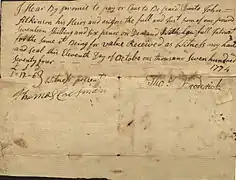 I Hear By promis to pay or Cause to Be paid Unto John
Atkinson his Heirs and assigns the full and just sum of one pound
Seventeen Shilling and six pence on Demand with Lawfull
for the same it Being for value Received as witness my hand
and seal this Eleventh Day of October one thousand Seven hundred
Seventy four 1774
1-17-6
witness present
Thos Brodrick
Thomas Coleman